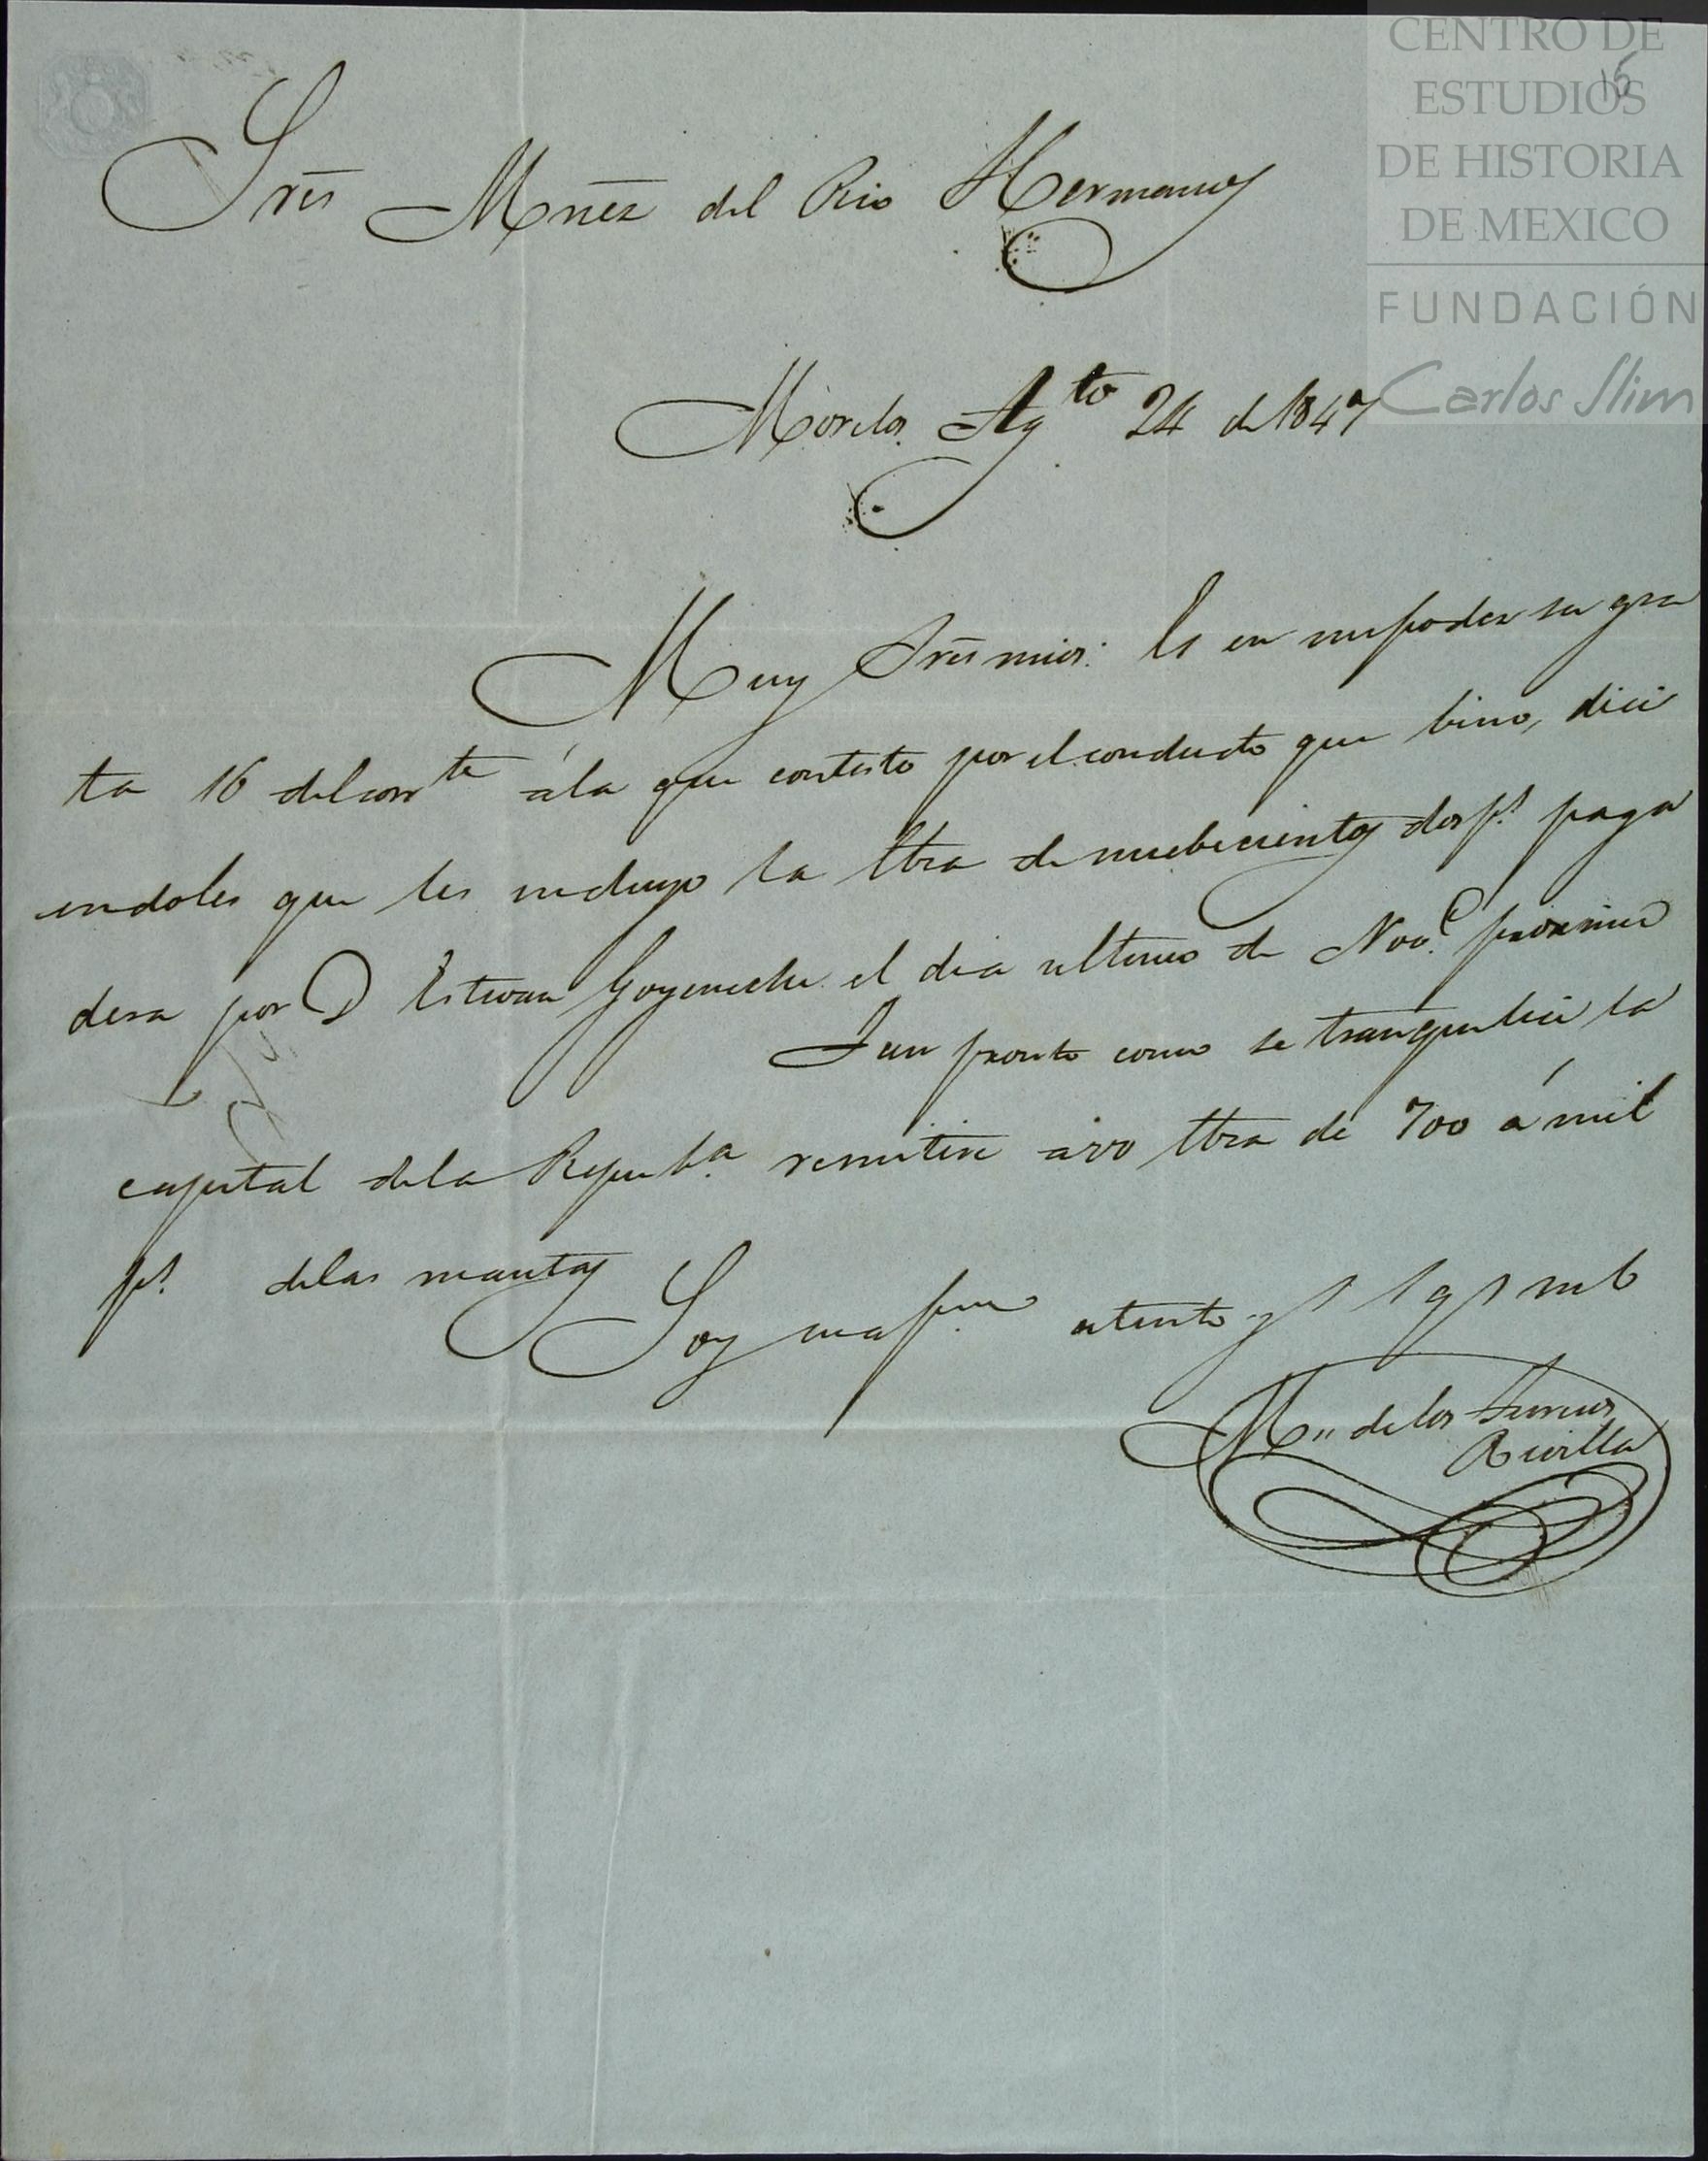 CENTRO DE
ESTUDIOS
DE HISTORIA
DE MEXICO
FUNDACIÓN
Carlos Slim
15
Sres Mñez del Rio Hermanos
Morelos. Agto 24 de 1847
Muy Sres mios: Es en mi poder su gra
ta 16 del corrte á la que contesto por el conducto que bino, dici
endoles que les incluyo la ltra de nuebecientos dos ps. paga
dera por D Estevan Goyeneche el dia ultimo de Nove. proximo
Tan pronto como se tranquilice la
capital de la Repuba. remitire a vv ltra de 700 á mil
ps. de las mantas
Soy su afmo atento y s s q s m b
M. de los
Revilla